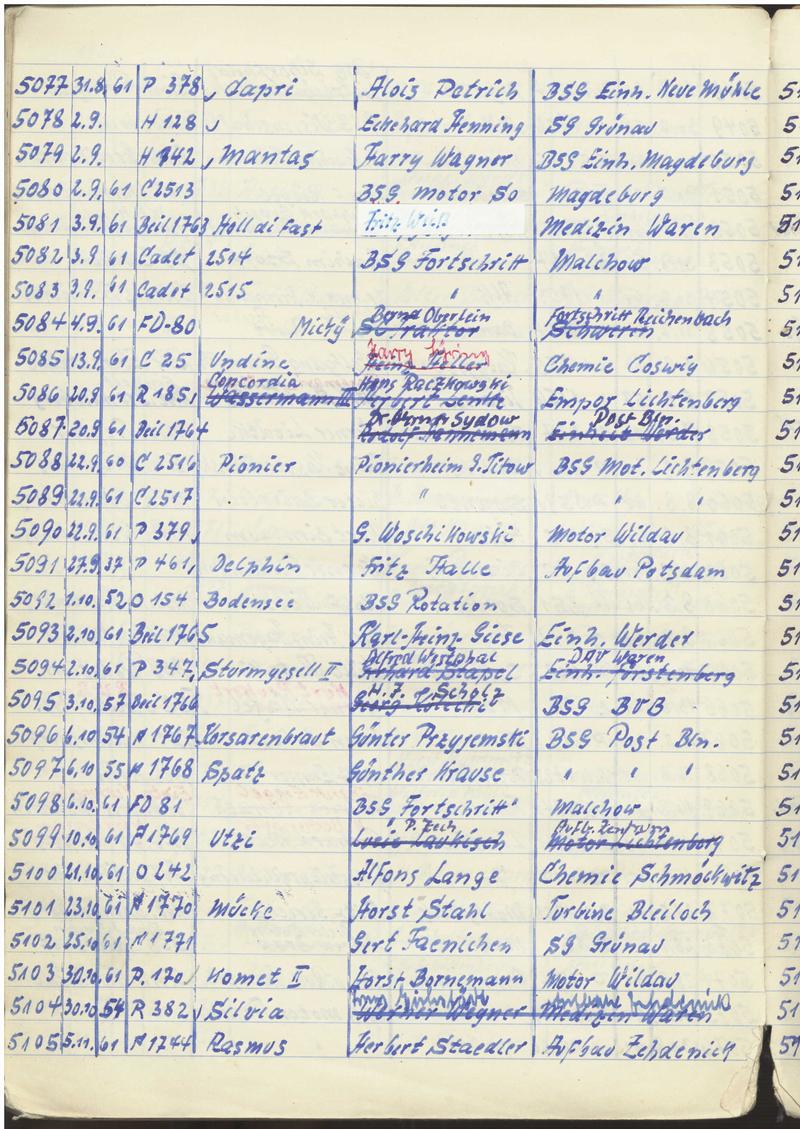 5077 31.8. 61 P 378, Capri Alois Petrich BSG Einh. Neue Mühle
5078 2.9. H 128, Eckehard Henning SG Grünau
5079 2.9. H 142, Mantas Harry Wagner BSG Einh. Magdeburg
5080 2.9. 61 C 2513 BSG Motor So Magdeburg
5081 3.9. 61 Beil 1763 Holl di fast Fritz Weiß Medizin Waren
5082 3.9 61 Cadet 2514 BSG Fortschritt Malchow
5083 3.9. 61 Cadet 2515 " "
Bernd Oberlein Fortschritt Reichenbach
5084 4.9. 61 FD-80 Micky SG Traktor Schwerin
Harry
5085 13.9. 61 C 25 Undine Heinz Chemie Coswig
Concordia Hans Raczkowski
5086 20.9 61 R 185, Wassermann III Herbert Empor Lichtenberg
Dr. Werner Sydow Post Bln.
5087 20.9 61 Beil 1764 Rudolf Hannemann Einheit Werder
5088 22.9. 60 C 2516 Pionier Pionierheim G. Titow BSG Mot. Lichtenberg
5089 22.9. 61 C 2517 " " "
5090 22.9. 61 P 379, G. Woschikowski Motor Wildau
5091 27.9. 37 P 461, Delphin Fritz Halle Aufbau Potsdam
5092 1.10. 52 O 154 Bodensee BSG Rotation
5093 2.10. 61 Beil 1765 Karl-Heinz Giese Einh. Werder
Alfred Westphal DAV Waren
5094 2.10. 61 P 347, Sturmgesell II Erhard Stapel Einh. Fürstenberg
H. J. Scholz
5095 3.10. 57 Beil 1766 Georg BSG BVB
5096 6.10 54 A 1767 Korsarenbraut Günter Przyjemski BSG Post Bln.
5097 6.10 55 A 1768 Spatz Günther Krause " " "
5098 6.10. 61 FD 81 BSG Fortschritt" Malchow
" P. Zech Aufb. Zentrum
5099 10.10. 61 A 1769 Utzi Lucie Motor Lichtenberg
5100 21.10. 61 O 242 Alfons Lange Chemie Schmöckwitz
5101 23.10. 61 A 1770 Mücke Horst Stahl Turbine Bleiloch
5102 25.10. 61 A 1771 Gert Faenichen SG Grünau
5103 30.10. 61 P. 170, Komet II Horst Bornemann Motor Wildau
5104 30.10 54 R 382, Silvia Werner Wegner Medizin Waren
5105 5.11. 61 A 1744 Rasmus Herbert Staedler Aufbau Zehdenick